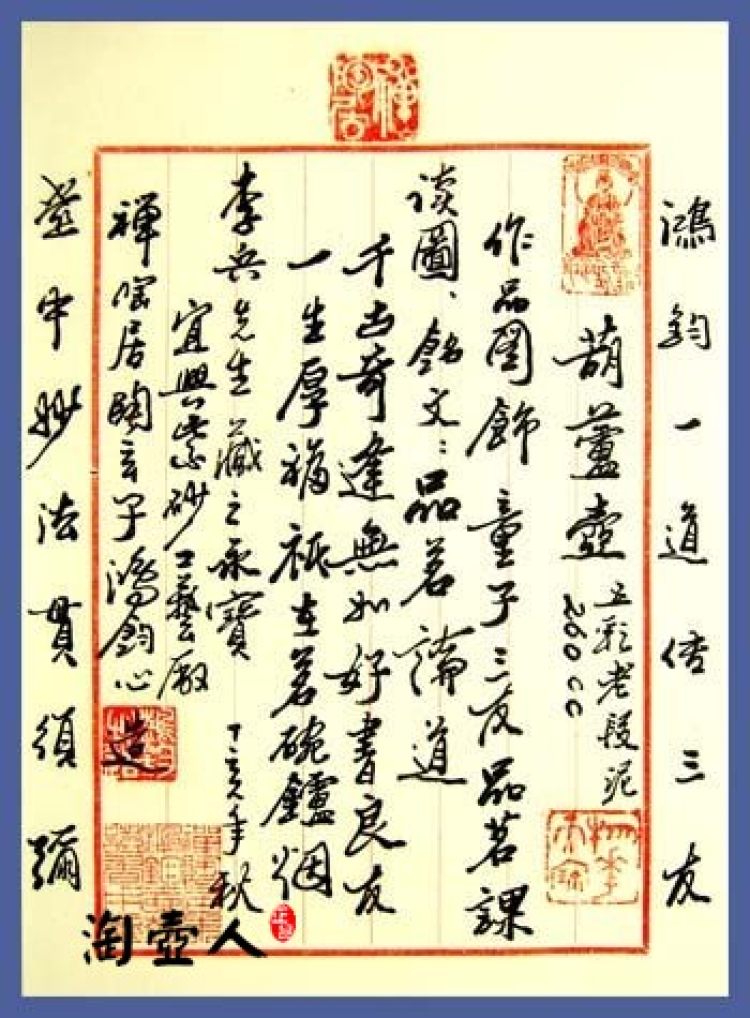 鴻鈞一道传三友
葫蘆壺 五彩老段泥
260cc
作品图飾童子三友品茗課
谈圖、銘文：品茗論道
千古奇逢無如好書良友
一生厚福祇在茗碗鑪烟
李兵先生藏之永寶 丁亥年秋
宜興紫砂工藝廠
禅陶居陶玄子鴻鈞心造
壺中妙法貫須彌
淘壺人